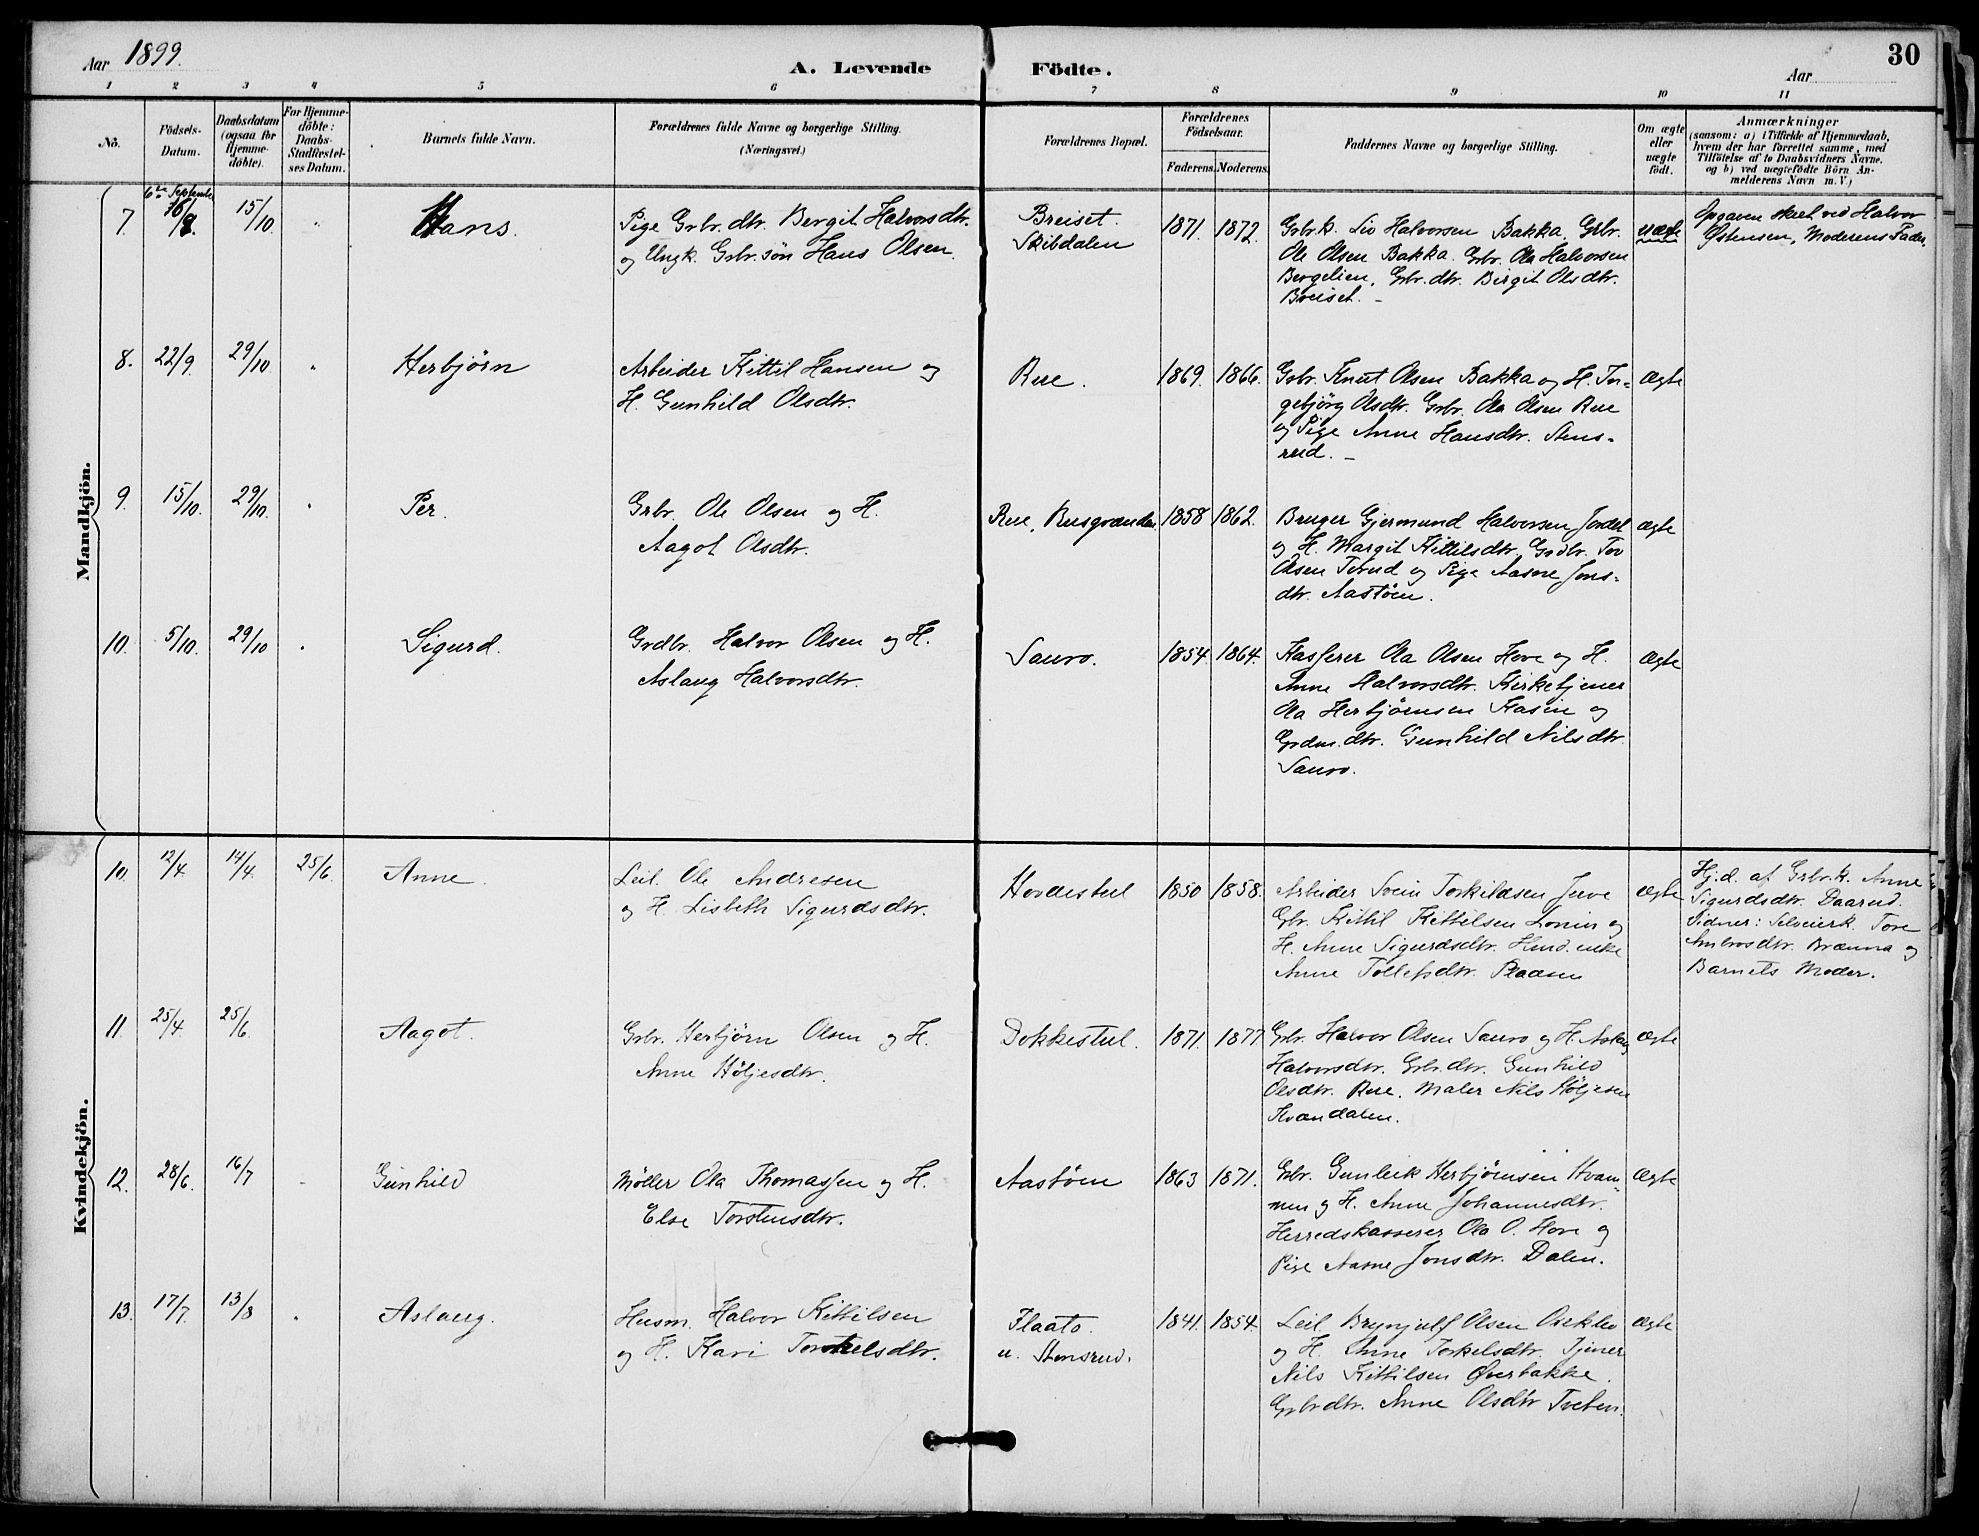 Aar 1899.
A. Levende Födte.
Aar
30
1 2 3 4 5 6 7 8 9 10 11
No.
Födsels-Datum.
Daabsdatum (ogsaa for Hjemme-döbte).
For Hjemme-döbte: Daabs-Stadfæstel-ses Datum.
Barnets fulde Navn.
Forældrenes fulde Navne og borgerlige Stilling. (Næringsvei.)
Forældrenes Bopæl.
Forældrenes Födselsaar.
Faderens. Moderens.
Faddernes Navne og borgerlige Stilling.
Om ægte eller uægte födt.
Anmærkninger
(saasom: a) i Tilfælde af Hjemmedaab,
hvem der har forrettet samme, med
Tilföielse af to Daabsvidners Navne.
og b) ved uægtefödte Börn An-
melderens Navn m. V.)
Mandkjön.
7. 6te September 15/10 " Hans.
Pige Grbr.dtr. Bergit Halvorsdtr.
og Ungk. Grbr.søn Hans Olsen.
Breiset.
Skibdalen
1871. 1872.
Grbr.k. Liv Halvorsen Bakka. Grbr.
Ole Olsen Bakka. Grbr. Ola Halvorsen
Bergelien, Grbr.dtr. Birgit Olsdtr.
Breiset. –
uægte
Opgaven skeet ved Halvor
Østensen, Moderens Fader.
8. 22/9. 29/10 " Herbjörn
Arbeider Kittil Hansen og
H. Gunhild Olsdtr.
Rue.
1869. 1866.
Grbr. Knut Olsen Bakka og H. In-
gebjörg Olsdtr. Grbr. Ola Olsen Rue
og Pige Anne Hansdtr. Stens-
rud. –
Ægte
9. 15/10. 29/10. " Per.
Grbr. Ole Olsen og H.
Aagot Olsdtr.
Rue,
1858 1862.
Bruger Gjermund Halvorsen Jordet
og H. Margit Kittilsdtr. Grdbr. Tov
Olsen Torud og Pige Aasne Jons-
dtr. Aastöen.
Ægte
10. 5/10. 29/10 " Sigurd.
Grdbr. Halvor Olsen og H.
Aslaug Halvorsdtr.
Sauro.
1854. 1864.
Kasserer Ola Olsen Hove og H.
Anne Halvorsdtr. Kirketjener
Ola Herbjörnsen Kasin og
Grdm.dtr. Gunhild Nilsdtr.
Sauro.
Ægte
Kvindekjön.
10. 12/4. 14/4. 25/6. Anne.
Leil. Ole Andresen
og H. Lisbeth Sigurdsdtr.
Hovdestul
1850 1858.
Arbeider Svein Torkildsen Juve
Gbr. Kittil Kittelsen Lonin og
H. Anne Sigurdsdtr. Husm.enke
Anne Tollefsdtr. Plaasen
Ægte
Hj.d. af Grbr.k. Anne
Sigurdsdtr. Daarud.
Vidner: Selveierk. Tore
Ambrosdtr. Brænna og
Barnets Moder.
11. 25/4. 25/6. Aagot.
Grbr. Herbjörn Olsen og H.
Anne Höljesdtr.
Dokkestul.
1871. 1877
Grbr. Halvor Olsen Sauro og H. Aslaug
Halvorsdtr. Grbr.dtr. Gunhild
Olsdtr. Rue, Maler Nils Höljesen
Kvandalen.
Ægte
12. 28/6. 16/7 Gunhild
Möller Ola Thomassen og H.
Else Torstensdtr.
Aastöen
1863 1871.
Grbr. Gunleik Herbjörnsen Hvam-
men og H. Anne Johannesdtr.
Herredskasserer Ola O. Hove og
Pige Aasne Jonsdtr. Dalen.
Ægte
13. 17/7. 13/8 " Aslaug.
Husm. Halvor Kittilsen
og H. Kari Torkelsdtr.
Flaato.
u. Stensrud.
1841. 1854.
Leil Brynjulf Olsen
og H. Anne Torkelsdtr. Tjener
Nils Kittilsen Överbakke.
Grbrdtr. Anne Olsdtr Tveten.
Ægte